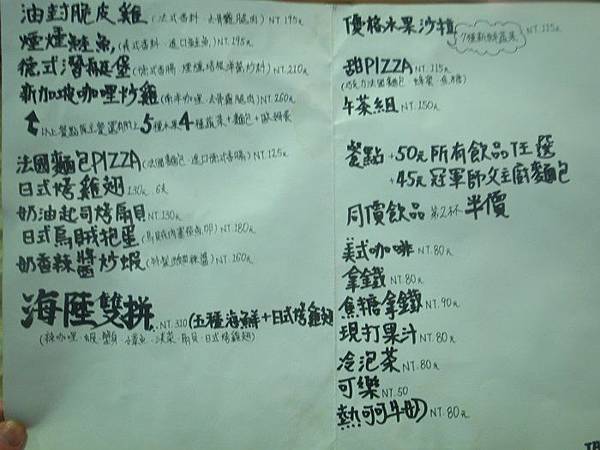 油封脆皮雞(法式香料.去骨雞腿肉)NT.195元
煙燻鮭魚(義式香料.進口鮭魚)NT.195元
德式潛艇堡 NT.210元
新加坡咖哩炒雞 NT.260元
以上餐點 5種水果4種蔬菜+麵包+
法國麵包PIZZA(法國麵包.進口德式香腸)NT.125元
日式烤雞翅130元 6支
奶油起司烤扇貝NT.130元
日式烏賊抱蛋 NT.180元
奶香辣醬炒蝦 NT.160元
海陸雙拼 NT.310(五種海鮮+日式烤雞翅
(辣咖哩.蝦.蟹.小章魚.淡菜.扇貝.日式烤雞翅)
優格水果沙拉 7種新鮮蔬菜 NT.115元
甜PIZZA NT.115元
(巧克力法國麵包.蜂蜜.焦糖)
午茶組NT.150元
餐點+50元所有飲品任選
+45元冠軍師父主廚麵包
同價飲品第2杯半價
美式咖啡NT.80元
拿鐵NT.80元
焦糖拿鐵NT.90元
現打果汁NT.80元
冷泡茶NT.80元
可樂NT.50
熱可可牛奶NT.80元